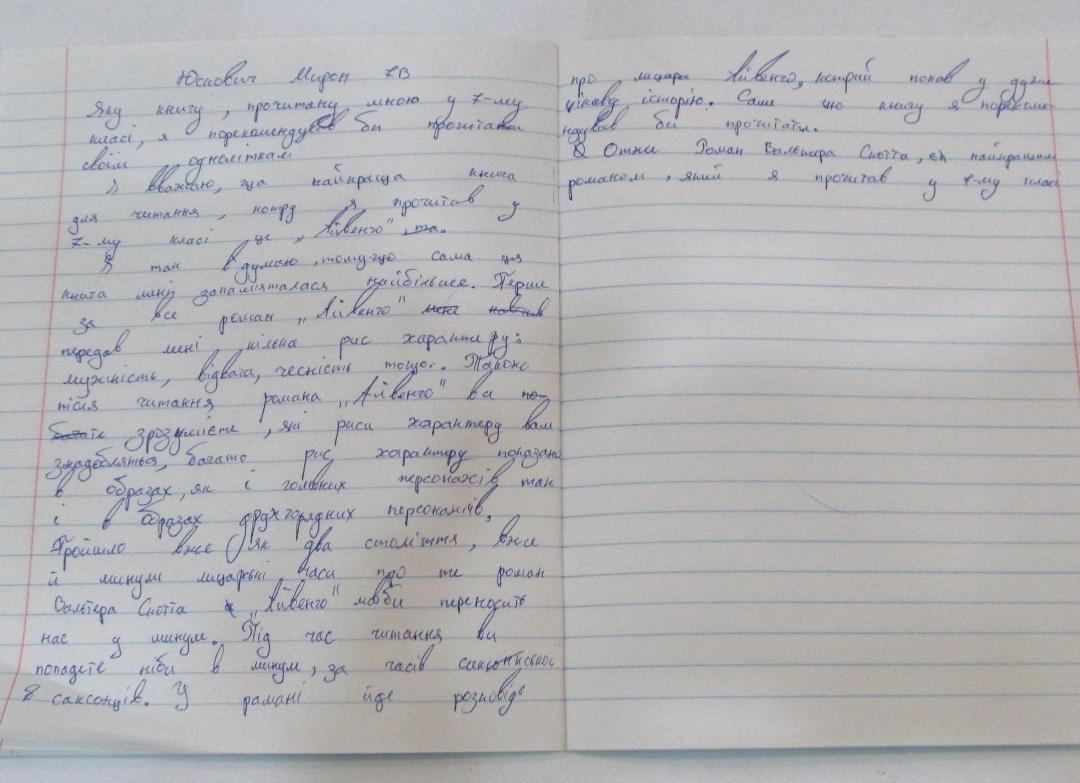 Юскович Мирон 7В
Яку книгу, прочитану мною у 7-му
класі, я порекомендував би прочитати
своїм одноліткам
Я вважаю, що найкраща книга
для читання, котру я прочитав у
7-му класі це „Айвенго", та.
Я так думаю, тому-що сама ця
книга мені запамяталася найбільше. Перше
за все роман „Айвенго" мене навчив
передав мені кілька рис характеру:
мужність, відвага, чесність тощо. Також
після читання романа „Айвенго" ви по-
бачите зрозумієте, які риси характеру вам
знадобляться, багато рис характеру показано
в образах, як і головних персонажів так
і в образах другорядних персонажів,
Пройшло вже як два століття, вже
й минули лицарські часи про те роман
Вальтера Скотта „Айвенго" мовби переносить
нас у минуле. Під час читання ви
попадете ніби в минуле, за часів
8 саксонців. У рамані йде розповідь
про лицаря Айвенго, котрий попав у дуже
цікаву історію. Саме цю книгу я порекоме-
ндував би прочитати.
Отже Роман Вальтера Скотта, є найкращим
романом, який я прочитав у 7-му класі